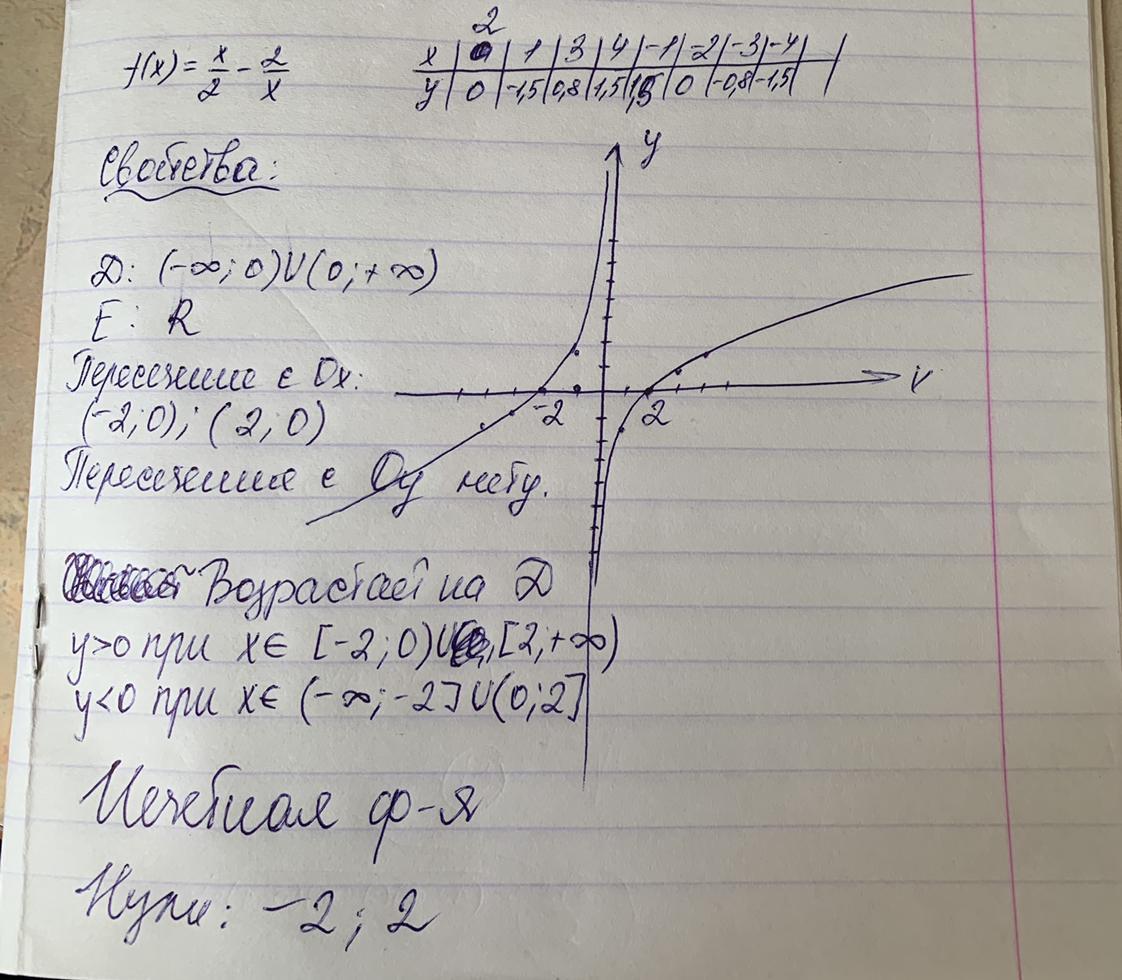 f(x) = x/2 - 2/x
x | 2 | 1 | 3 | 4 | -1 | -2 | -3 | -4 |
y | 0 | -1,5 | 0,8 | 1,5 | 1,5 | 0 | -0,8 | -1,5 |
Свойства:
y
D: (-∞; 0)U(0; +∞)
E: R
Пересечение с Ox:
x
(-2; 0); (2; 0)
-2 2
Пересечение с Oy нету.
Возрастает на D
y>0 при x∈ [-2; 0)U[2; +∞)
y<0 при x∈ (-∞; -2]U(0; 2]
Нечетная ф-я
Нули: -2; 2